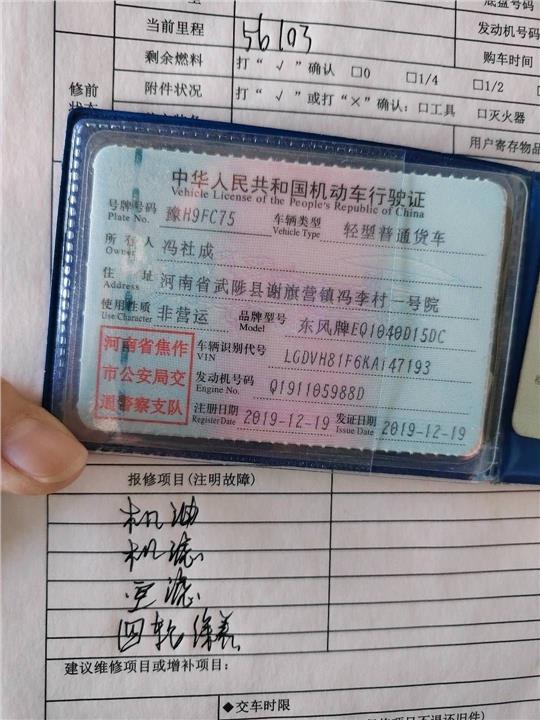 底盘号码
当前里程 56103 发动机号码
剩余燃料 打“√”确认 □0 □1/4 □1/2 购车时间
修前 附件状况 打“√”或打“×”确认：□工具 □灭火器
状态
用户寄存物品
中华人民共和国机动车行驶证
Vehicle License of the People's Republic of China
号牌号码 豫H9FC75 车辆类型 轻型普通货车
Plate No. Vehicle Type
所有人 冯社成
Owner
住址 河南省武陟县谢旗营镇冯李村一号院
Address
使用性质 非营运 品牌型号 东风牌EQ1040D15DC
Use Character Model
河南省焦作
市公安局交
通警察支队
车辆识别代号 LGDVH81F6KA147193
VIN
发动机号码 Q191105988D
Engine No.
注册日期 2019-12-19 发证日期 2019-12-19
Register Date Issue Date
报修项目(注明故障)
机油
机滤
空滤
四轮保养
建议维修项目或增补项目:
◆交车时限